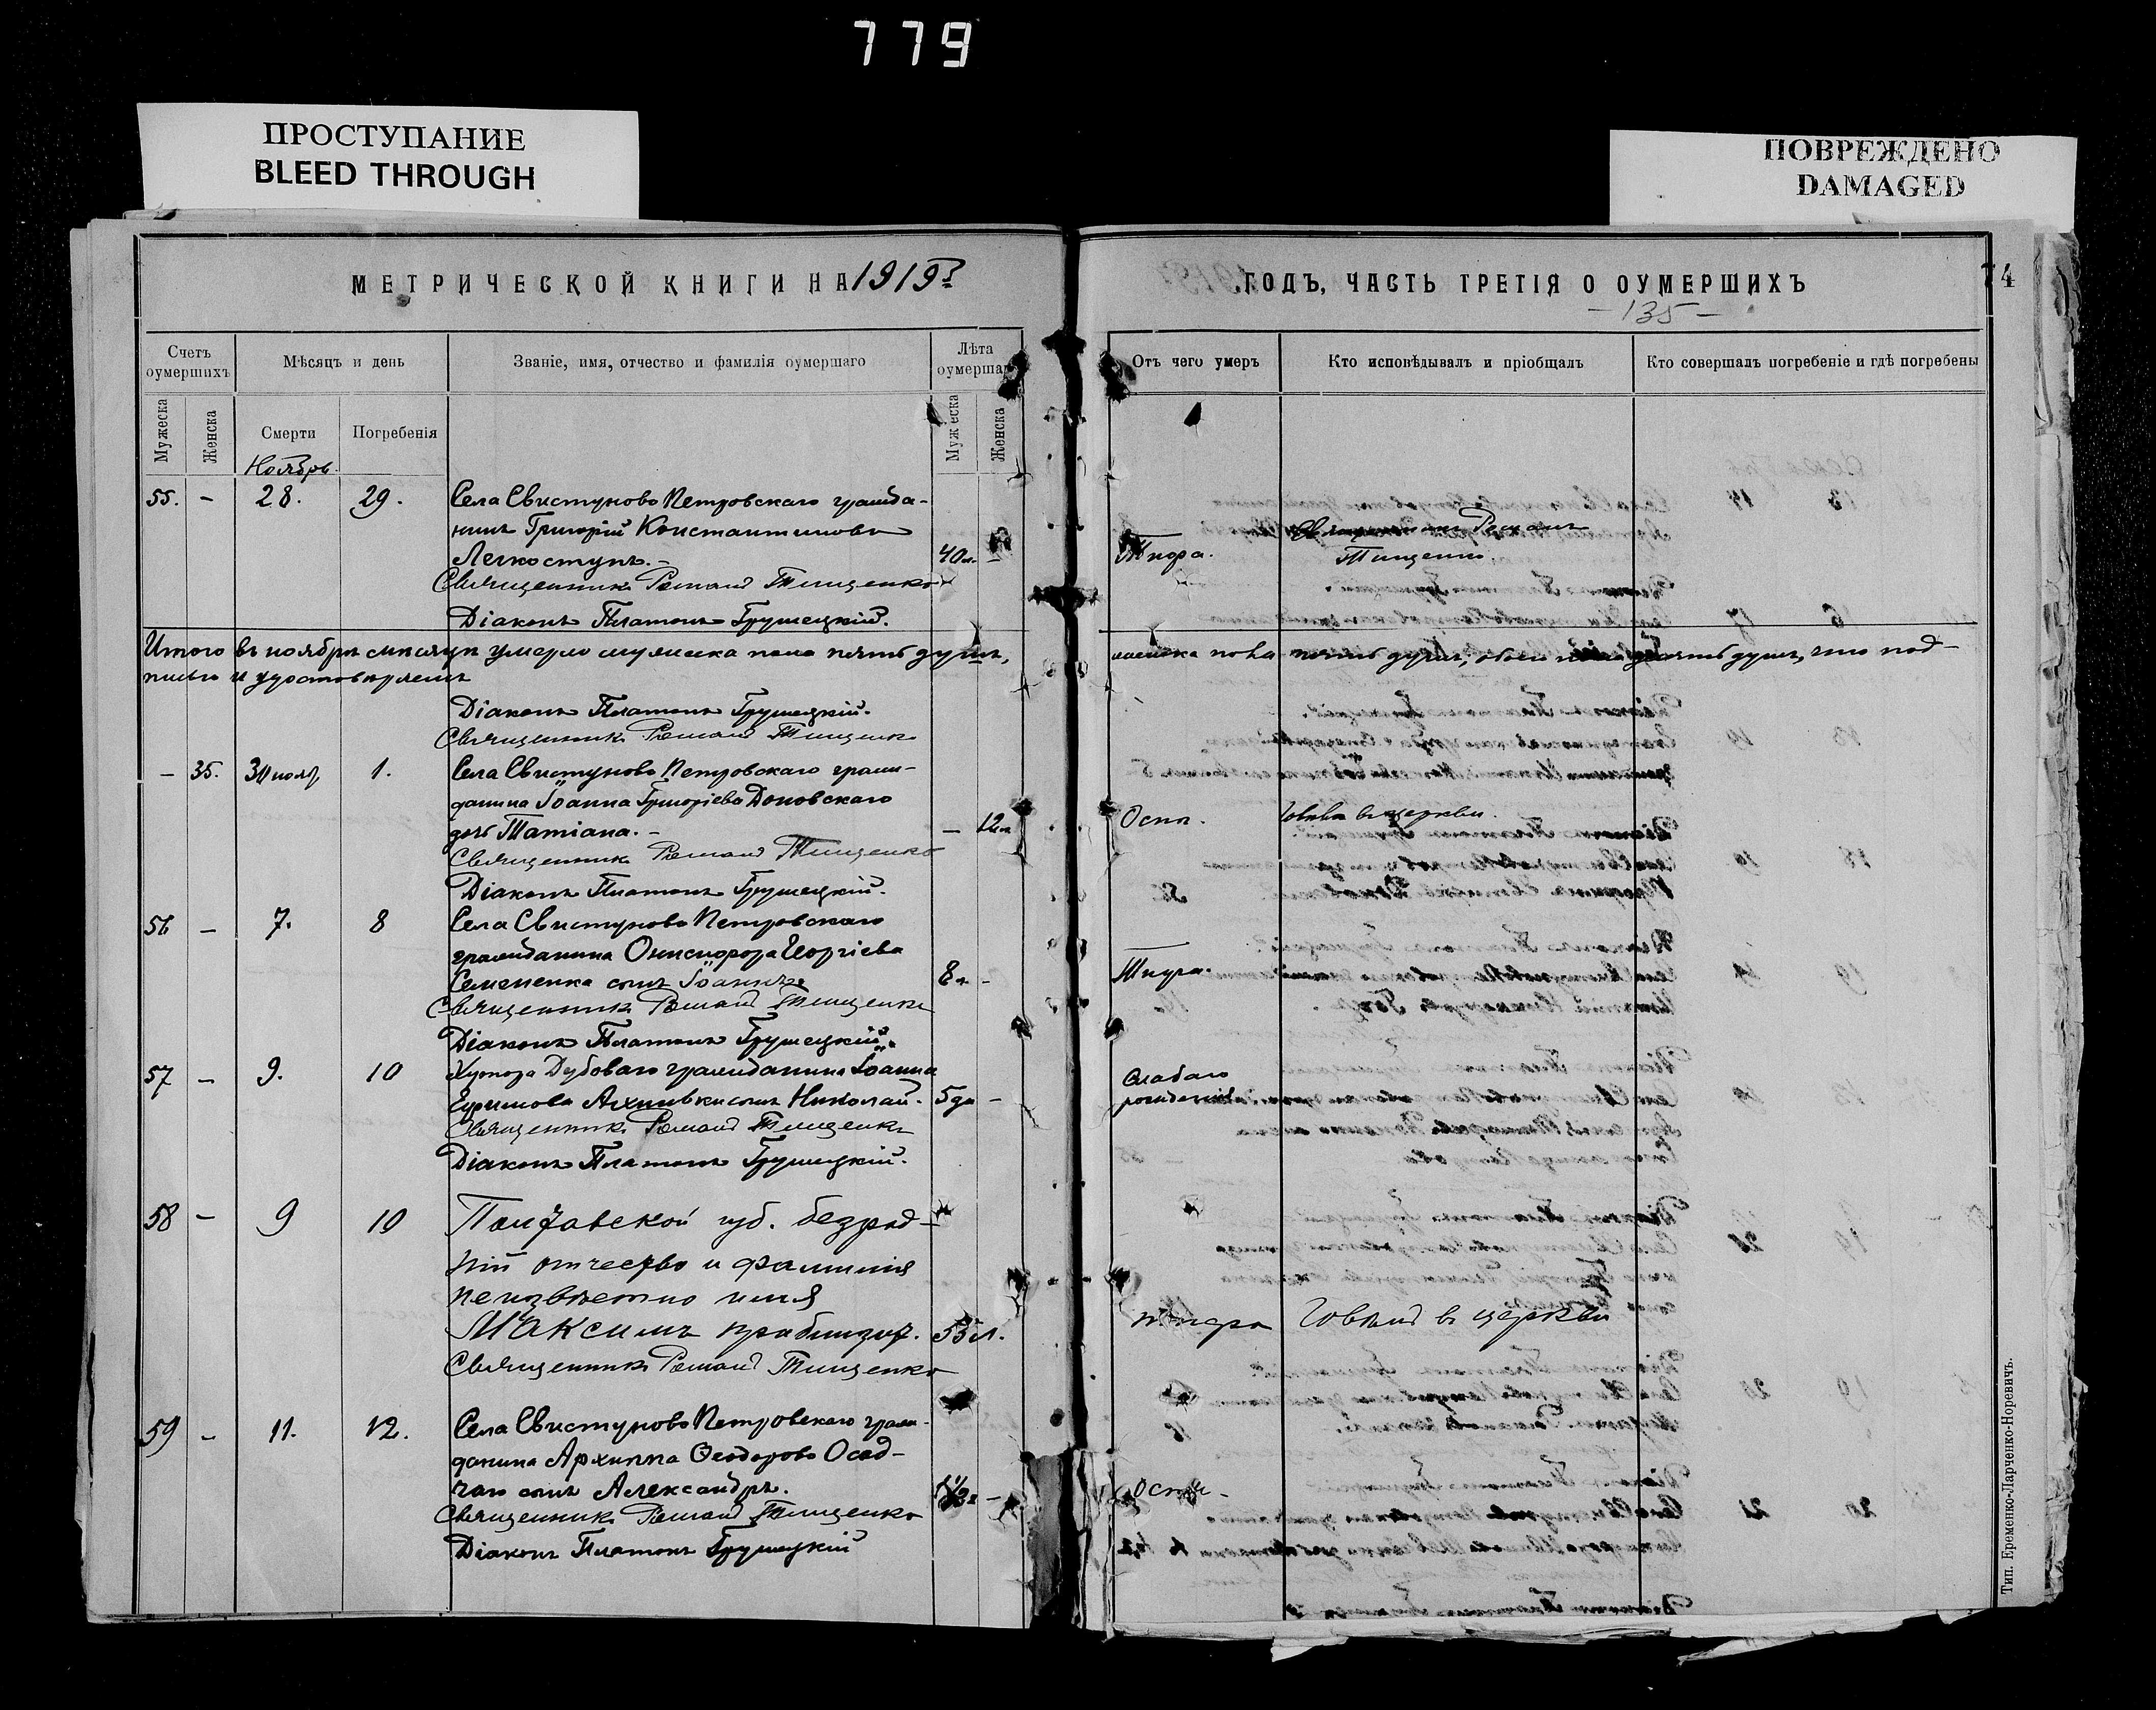 779
ПРОСТУПАНИЕ
BLEED THROUGH
ПОВРЕЖДЕНО
DAMAGED
МЕТРИЧЕСКОЙ КНИГИ НА 1919 г
ГОДЪ, ЧАСТЬ ТРЕТІЯ О ОУМЕРШИХЪ
74
- 135 -
Счетъ оумершихъ
Мѣсяцъ и день
Званіе, имя, отчество и фамилія оумершаго
Лѣта оумершаго
Отъ чего умеръ
Кто исповѣдывалъ и пріобщалъ
Кто совершалъ погребеніе и гдѣ погребены
Мужеска
Женска
Смерти
Погребенія
Мужеска
Женска
Ноябрь
55. - 28. 29. Села Свистуново Петровскаго гражда-
нинъ Григорій Константиновъ
Легкоступъ. - 40 л. - Тифа. Священникъ Романъ
Тищенко.
Священникъ Романъ Тищенко
Діаконъ Платонъ Грушецкій.
Итого въ ноябрѣ мѣсяцѣ умерло мужеска пола пять душъ, женска пола пять душъ, обоего пола десять душъ, что под-
писью и удостовѣряемъ
Діаконъ Платонъ Грушецкій.
Священникъ Романъ Тищенко
- 35. 30 нояб. 1. Села Свистуново Петровскаго граж-
данина Іоанна Григоріева Доновскаго
дочь Татіана. - - 12 л. Оспы. Говѣла въ церкви.
Священникъ Романъ Тищенко
Діаконъ Платонъ Грушецкій.
56 - 7. 8 Села Свистуново Петровскаго
гражданина Онисифора Георгіева
Семененка сынъ Іоаннъ. 8 л. - Тифа.
Священникъ Романъ Тищенко
Діаконъ Платонъ Грушецкій.
57 - 9. 10 Хутора Дубоваго гражданина Іоанна
Ефимова сынъ Николай. 5 дн - Слабаго
рожденія
Священникъ Романъ Тищенко
Діаконъ Платонъ Грушецкій.
58 - 9 10 Полтавской губ. безрод-
ній отчество и фамилия
неизвѣстно имя
Максимъ 53 л. тифа Говѣлъ въ церкви
Священникъ Романъ Тищенко
59 - 11. 12. Села Свистуново Петровскаго граж-
данина Архиппа Ѳеодорова Осад-
чаго сынъ Александръ. - Оспы -
Священникъ Романъ Тищенко
Діаконъ Платонъ Грушецкій
Тип. Еременко-Ларченко-Норевичъ.